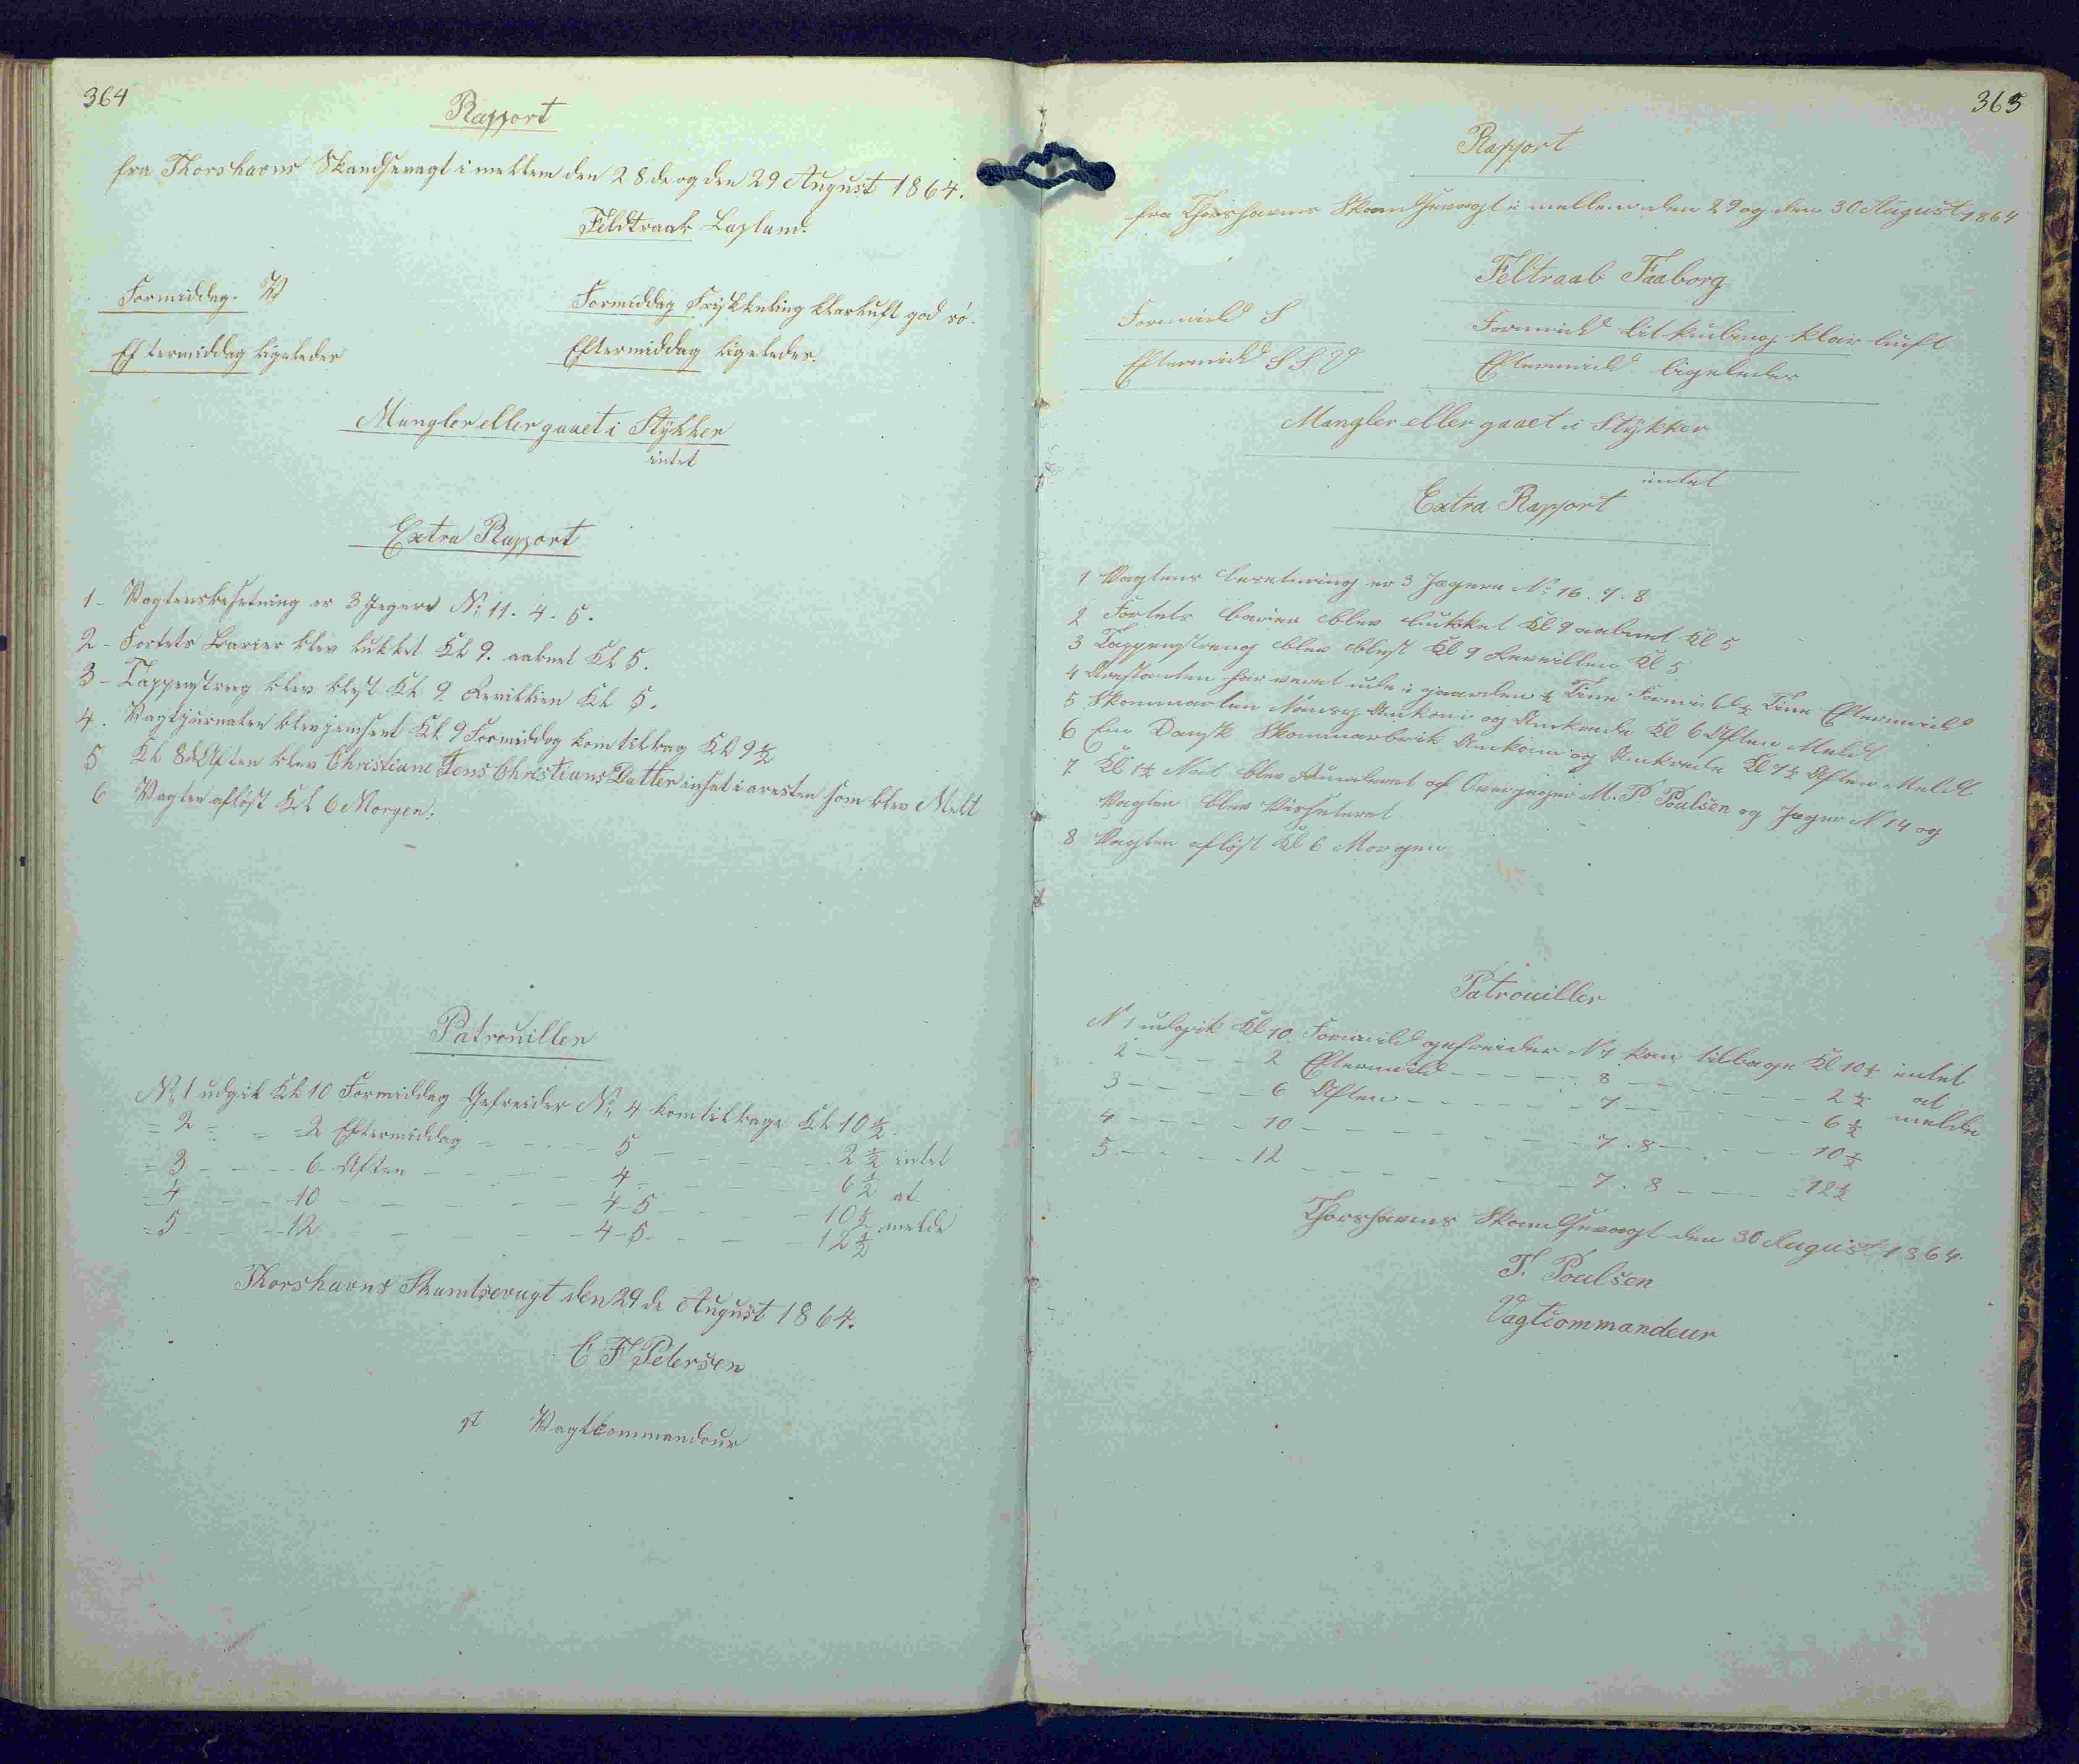 364
Rapport
fra Thorshavns Skandsevagt i mellem den 28de og den 29 August 1864.
Feldtraab
Formiddag. W
Formiddag Frisk kuling klar luft god sö.
Eftermiddag ligeledes
Eftermiddag ligeledes.
Mangler eller gaaet i Stÿkker
intet
Extra Rapport
1- Vagtens besetning er 3 Jegere No 11. 4. 5.
2- Fortets Barier blev lukket Kl 9. aabnet Kl 5.
3- Tappenstreg blev blest Kl 9 Revillien Kl 5.
4. Vagtjurnalen blev jemsent Kl 9 Formiddag kom tilbag Kl 9 1/2
5 Kl 8 Aften blev Christiane Jens Christians Datter insat i aresten som blev Melt
6 Vagten aflöst Kl 6 Morgen.
Patrouiller
No 1 udgik Kl 10 Formiddag Gefreider No 4 kom tilbage Kl 10 1/2
= 2 = - = -2 Eftermiddag - - - - 5 - - - - - 2 1/2 intet
= 3 - - - - 6 Aften - - - - - 4 - - - - - 6 1/2 at
= 4 - - - 10 - - - - - 4-5 - - - - 10 1/2 melde
= 5 - - - 12 - - - - - 4-5 - - - - 12 1/2
Thorshavns Skantsevagt den 29de August 1864.
C F Petersen
Vagtkommandeur
365
Rapport
fra Thorshavns Skandsevagt i mellem den 29 og den 30 August 1864
Feltraab Faaborg
Formidd S
Formidd lit kuling klar luft
Eftermidd S S V
Eftermidd ligeledes
Mangler eller gaaet i Stÿkker
intet
Extra Rapport
1 Vagtens besetning er 3 Jægere No 16. 7. 8
2 Fortets barier blev lukket Kl 9 aabnet Kl 5
3 Tappenstreng blev blest Kl 9 Reveillien Kl 5
4 Arestanten har veret ude i gaarden 1/2 Time Formidd 1/2 Time Eftermidd
5 Skonnarten Ankom og Ankrede Kl 6 Aften Meldt
6 Em Dansk Skonnarbrik Ankom og Ankrede Kl 7 1/2 Aften Meldt
7 Kl 1 1/2 Nat blev Runderet af Overjeger M. P. Poulsen og Jæger N 14 og
Vagten blev Visiteret
8 Vagten aflöst Kl 6 Morgen
Patrouiller
N 1 udgik Kl 10 Formidd gefreider N 7 kom tilbage Kl 10 1/2 intet
2 - - - - 2 Eftermidd - - - - - 8 - - - - - 2 1/2 at
3 - - - - 6 Aften - - - - - 7 - - - - - 6 1/2 melde
4 - - - - 10 - - - - - - 7. 8 - - - - 10 1/2
5 - - - - 12 - - - - - - 7. 8 - - - - 12 1/2
Thorshavns Skandsevagt den 30 August 1864.
P. Poulsen
Vagtcommandeur